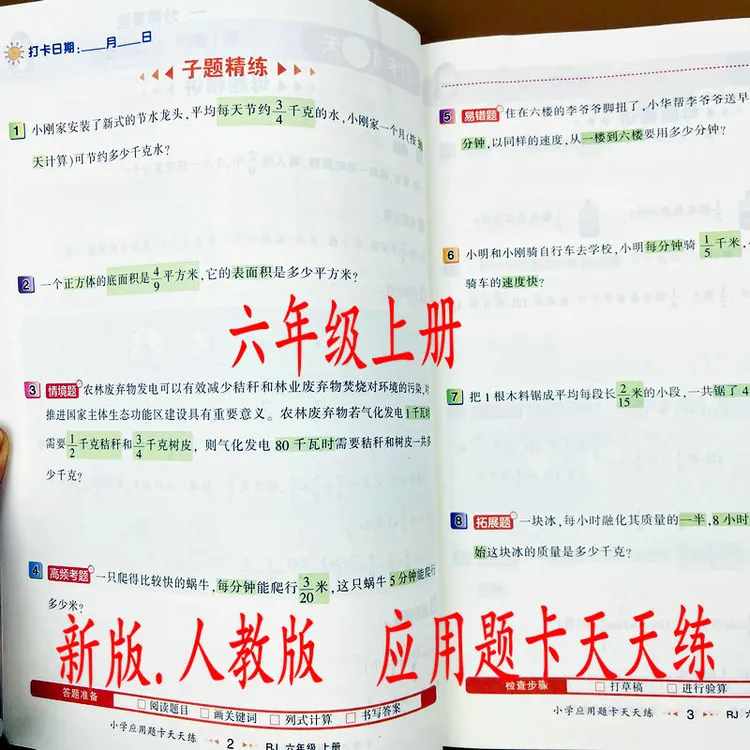 打卡日期:___月___日
子题精练
1 小刚家安装了新式的节水龙头,平均每天节约3/4千克的水,小刚家一个月(按30
天计算)可节约多少千克水?
2 一个正方体的底面积是4/9平方米,它的表面积是多少平方米?
六年级上册
3 情境题 农林废弃物发电可以有效减少秸秆和林业废弃物焚烧对环境的污染,对
推进国家主体生态功能区建设具有重要意义。农林废弃物若气化发电1千瓦时
需要1/2千克秸秆和3/4千克树皮,则气化发电80千瓦时需要秸秆和树皮一共多
少千克?
4 高频考题 一只爬得比较快的蜗牛,每分钟能爬行3/20米,这只蜗牛5分钟能爬行
多少米?
新版.人教版 应用题卡天天练
答题准备 □阅读题目 □画关键词 □列式计算 □书写答案
小学应用题卡天天练 2 RJ 六年级 上册
5 易错题 住在六楼的李爷爷脚扭了,小华帮李爷爷送早
分钟,以同样的速度,从一楼到六楼要用多少分钟?
6 小明和小刚骑自行车去学校,小明每分钟骑1/5千米,
骑车的速度快?
7 把1根木料锯成平均每段长2/15米的小段,一共锯了4
8 拓展题 一块冰,每小时融化其质量的一半,8小时
始这块冰的质量是多少千克?
检查步骤 □打草稿 □进行验算
小学应用题卡天天练 3 RJ 六